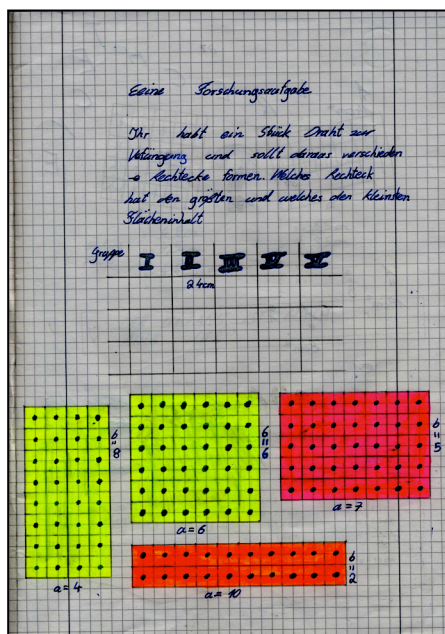 Eeine Forschungsaufgabe
Ihr habt ein Stück Draht zur
Verfüngung und sollt daraus verschieden
-e Rechtecke formen. Welches Rechteck
hat den größten und welches den kleinsten
Flächeninhalt
Gruppe I II III IV V
24cm
b=8
a=4
b=6
a=6
b=5
a=7
b=2
a=10